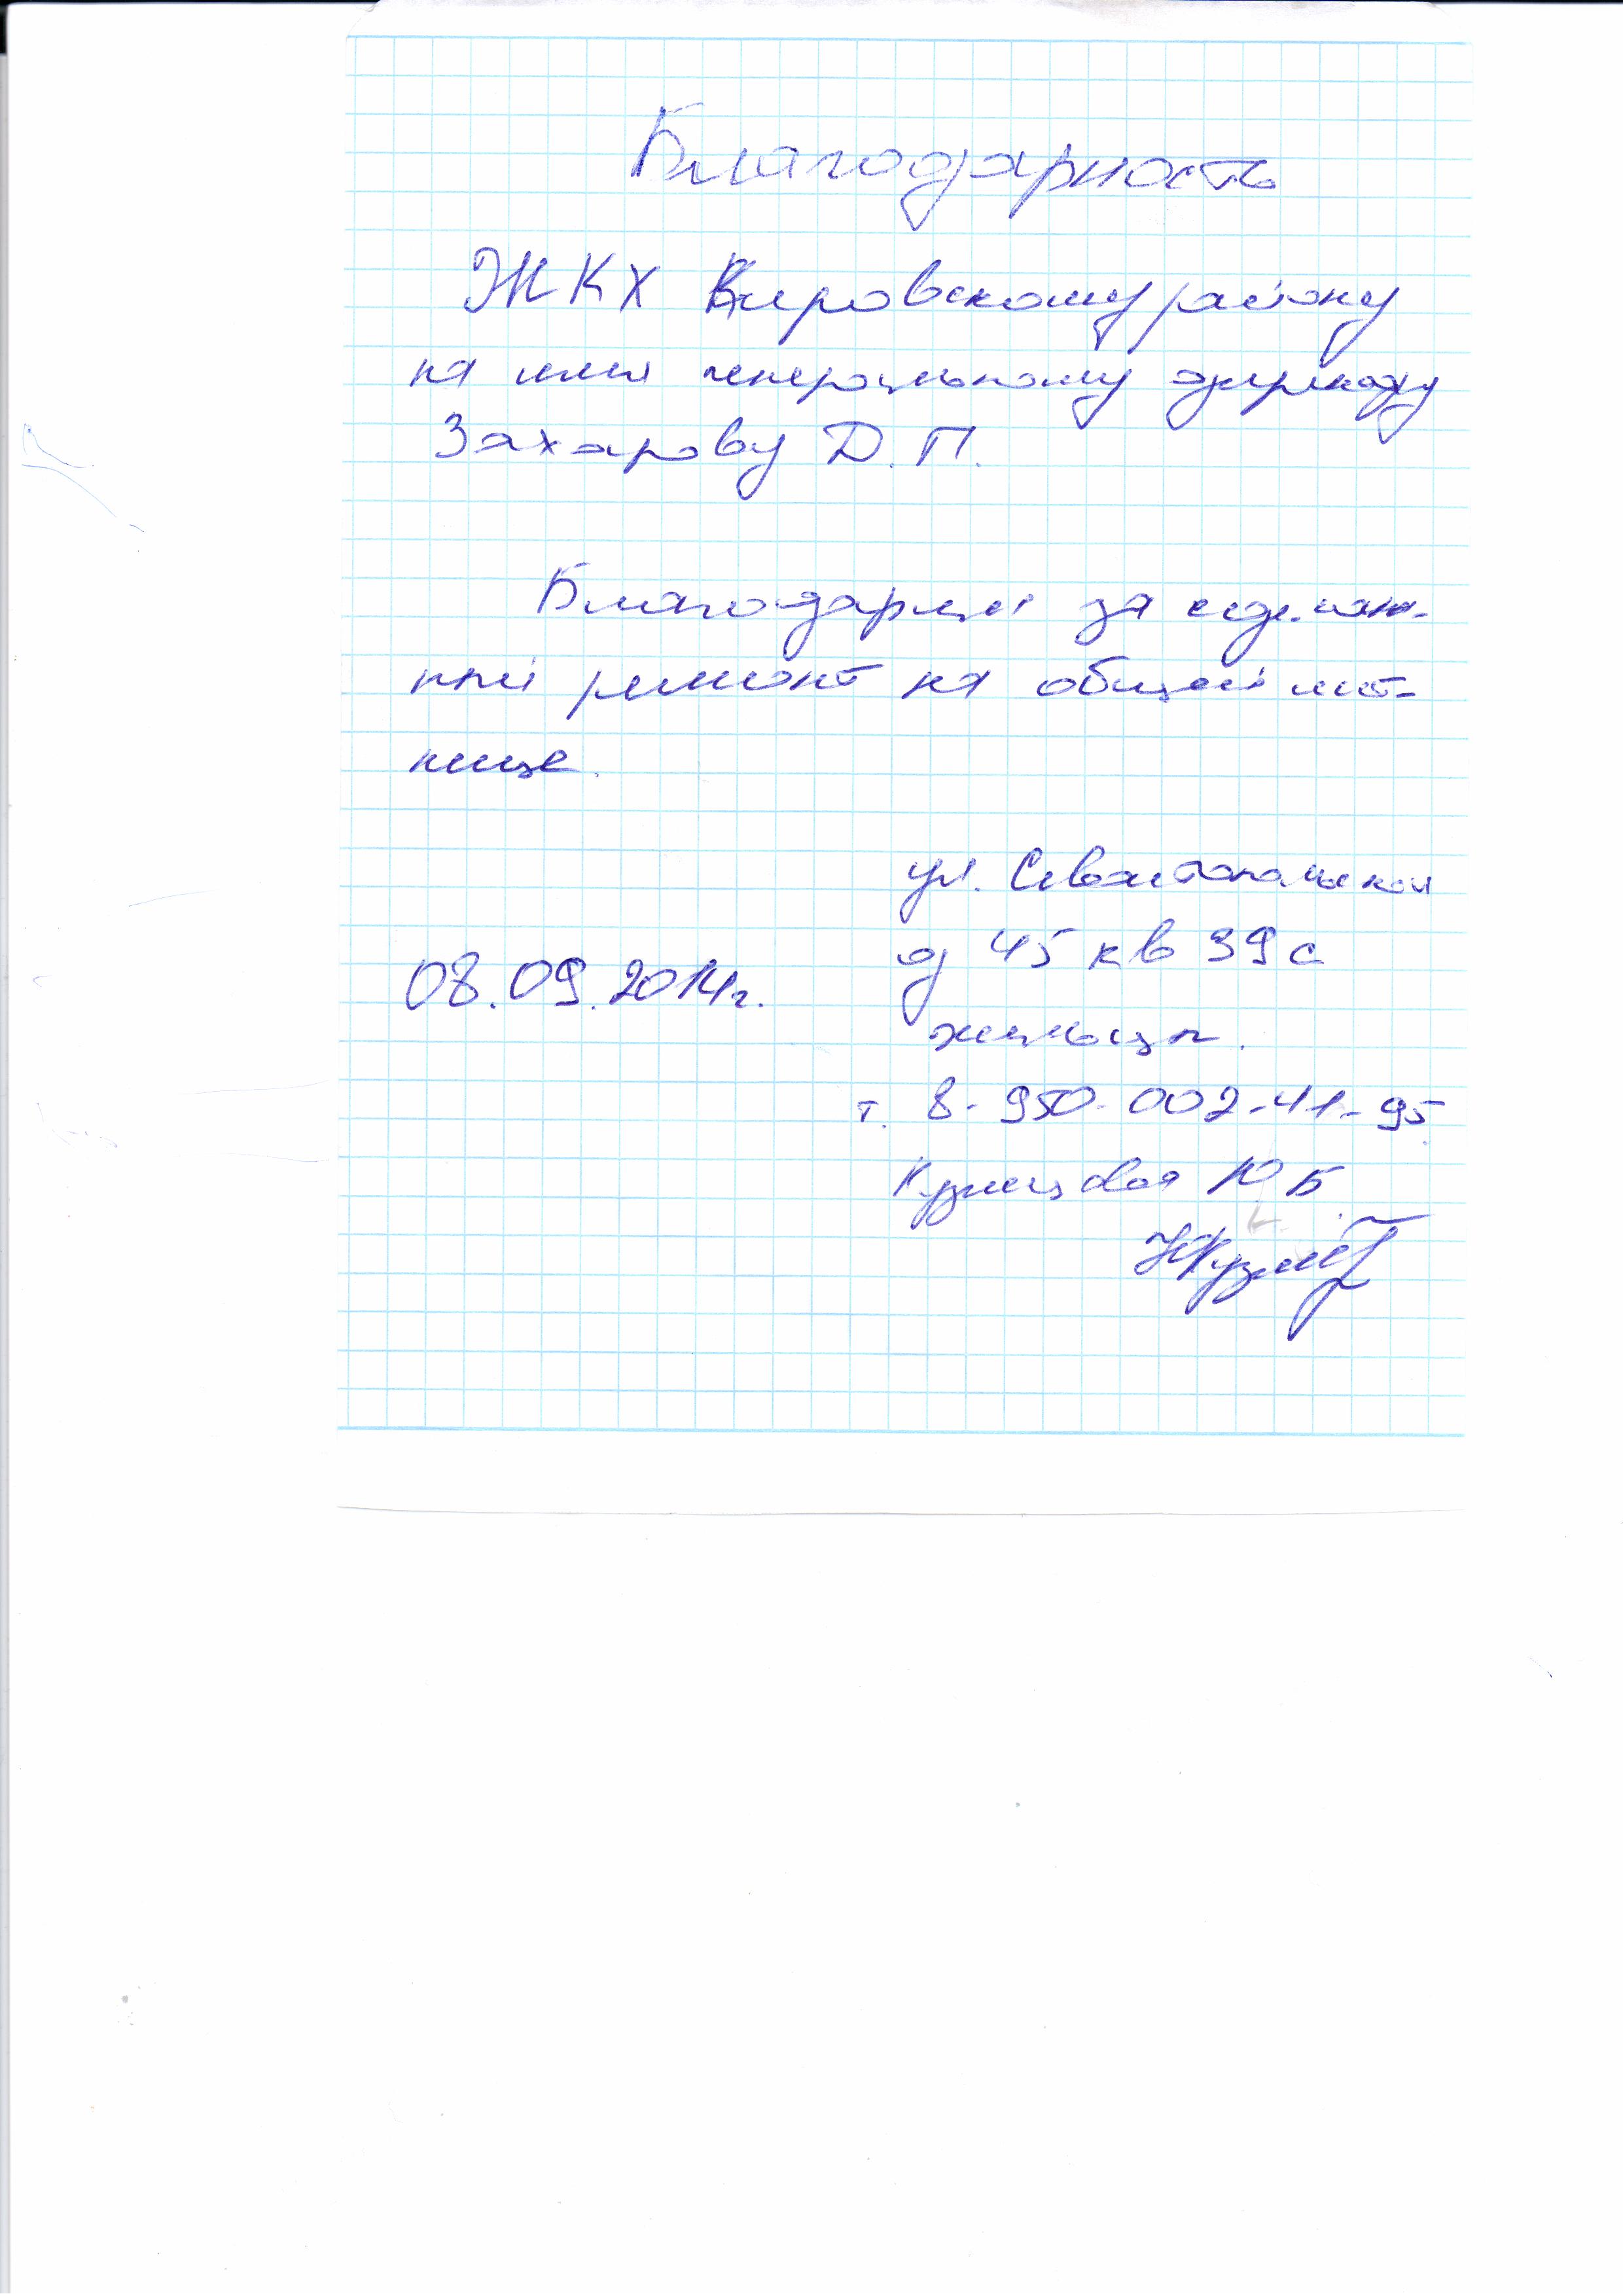 Благодарность
ЖКХ Кировскому району
на имя генеральному директору
Захарову Д.П.
Благодарим за сделан-
ный ремонт на общей лест-
нице.
ул. Севастопольская
д 45 кв 39 а
08.09.2014г.
жильцы.
т. 8-950-002-41-95
Кузнецовая Ю Б